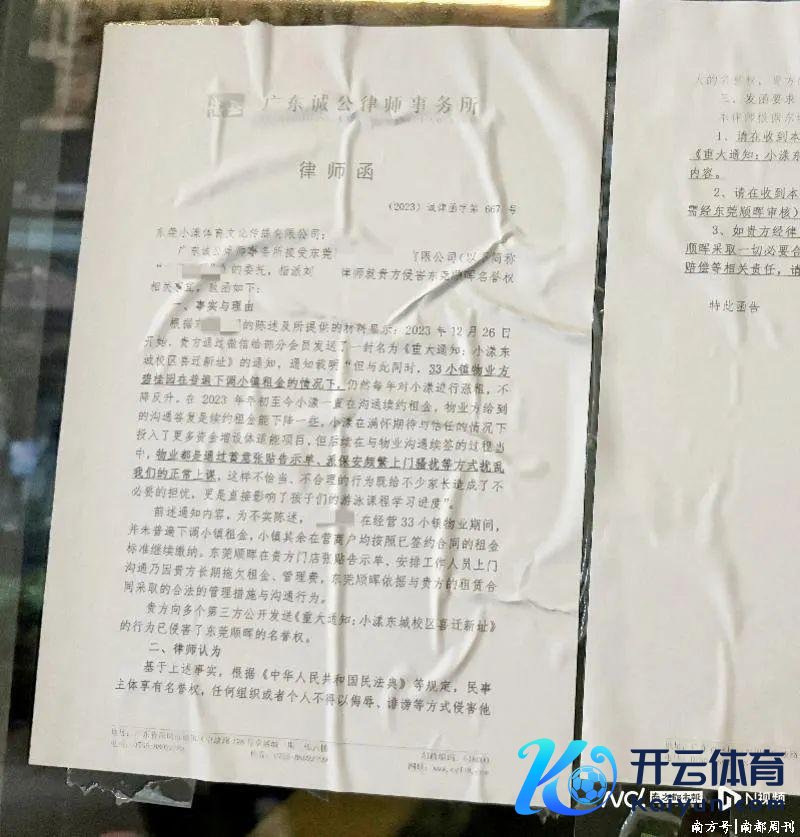 广东诚公律师事务所
律师函
（2023）诚律函字第 667 号
东莞小漾体育文化传播有限公司：
广东诚公律师事务所接受东莞 有限公司（以下简称
“ ”）的委托，指派刘 律师就贵方侵害东莞顺晖名誉权
相关事宜，致函如下：
一、事实与理由
根据东 的陈述及所提供的材料显示：2023 年 12 月 26 日
开始，贵方通过微信给部分会员发送了一封名为《重大通知：小漾东
城校区喜迁新址》的通知，通知载明“但与此同时，33 小镇物业方
碧桂园在普遍下调小镇租金的情况下，仍然每年对小漾进行涨租，不
降反升。在 2023 年年初至今小漾一直在沟通续约租金，物业方给到
的沟通答复是续约租金能下降一些，小漾在满怀期待与信任的情况下
投入了更多资金增设体适能项目，但后续在与物业沟通续签的过程当
中，物业都是通过首意张贴告示单、派保安频繁上门骚扰等方式扰乱
我们的正常上课，这样不恰当、不合理的行为既给不少家长造成了不
必要的担忧，更是直接影响了孩子们的游泳课程学习进度”。
前述通知内容，为不实陈述， 在经营 33 小镇物业期间，
并未普遍下调小镇租金，小镇其余在营商户均按照已签约合同的租金
标准继续缴纳。东莞顺晖在贵方门店张贴告示单、安排工作人员上门
沟通乃因贵方长期拖欠租金、管理费，东莞顺晖依据与贵方的租赁合
同采取的合法的管理措施与沟通行为。
贵方向多个第三方公开发送《重大通知：小漾东城校区喜迁新址》
的行为已侵害了东莞顺晖的名誉权。
二、律师认为
基于上述事实，根据《中华人民共和国民法典》等规定，民事
主体享有名誉权，任何组织或者个人不得以侮辱、诽谤等方式侵害他
人的名誉权，贵方
三、发函要求
本律师根据东
1、请在收到本
《重大通知：小漾东
内容。
2、请在收到本
需经东莞顺晖审核）
3、如贵方经律
顺晖采取一切必要合
赔偿等相关责任，请
特此函告
开云体育
Kaiyun.com
N视频
南方号|南都周刊